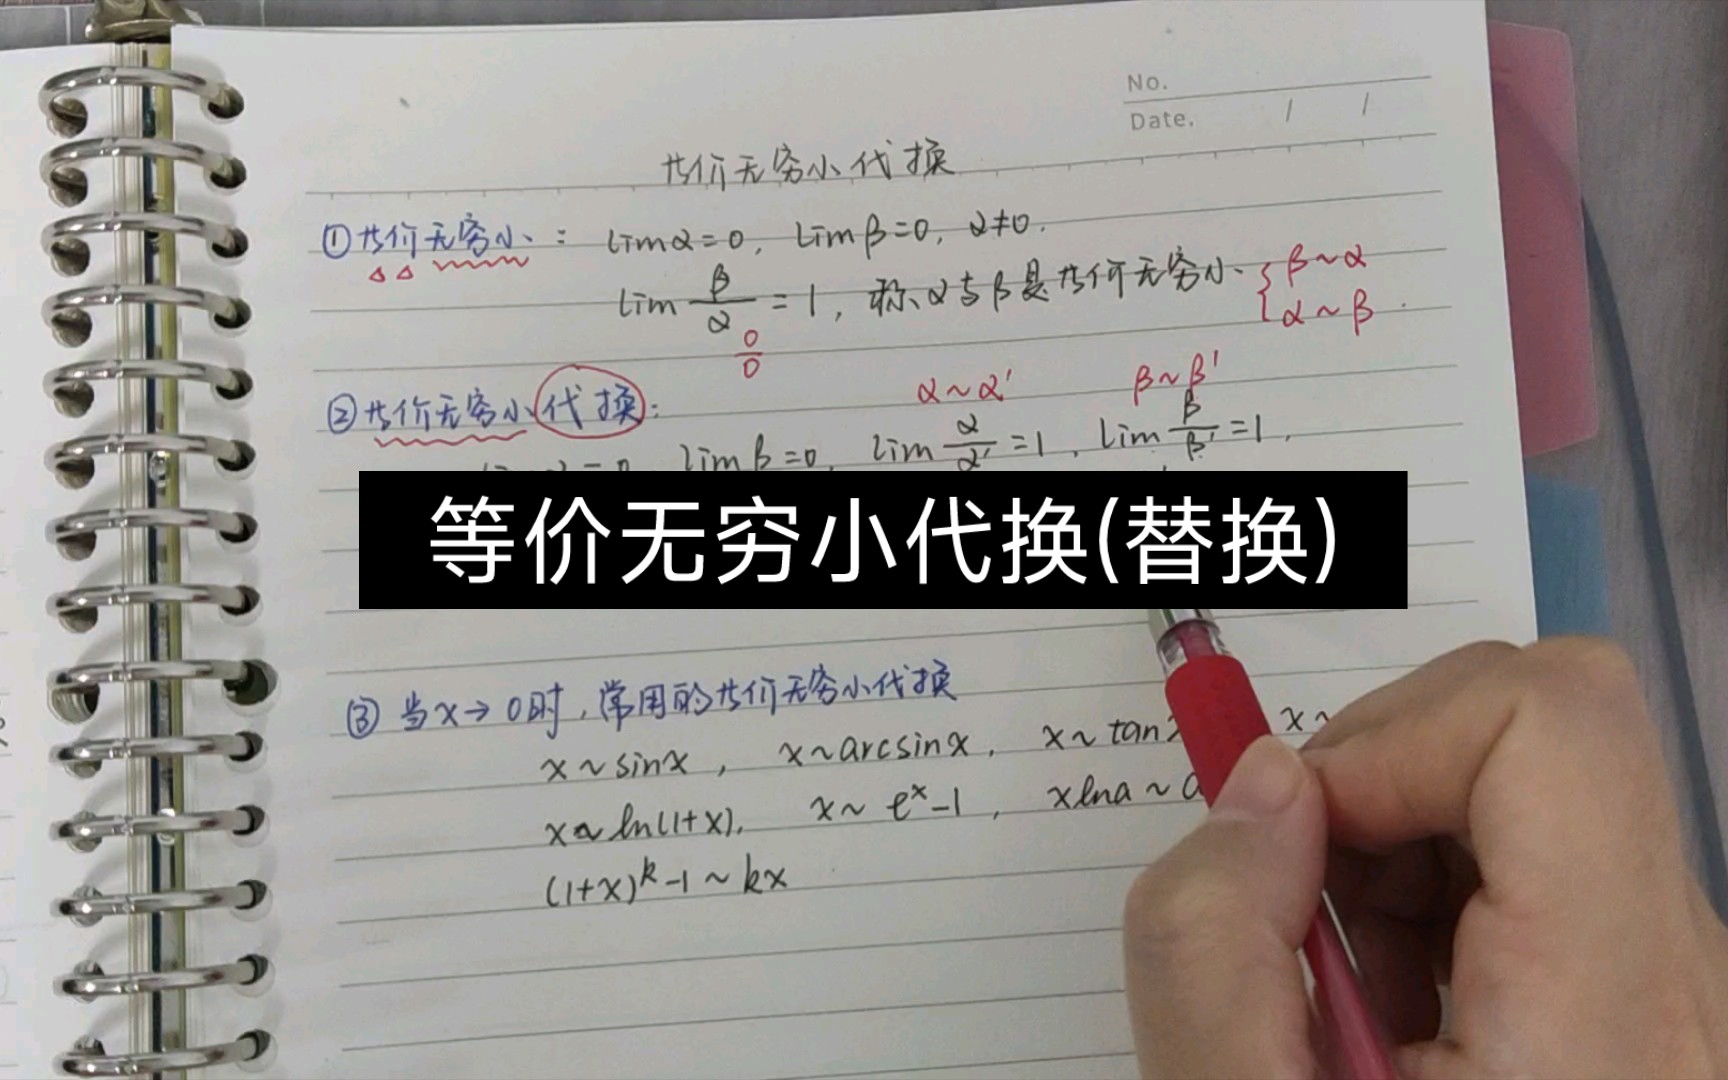 No.
Date. / /
等价无穷小代换
①等价无穷小: limα=0, limβ=0, α≠0.
lim β/α = 1, 称α与β是等价无穷小 { β~α
α~β
0/0
②等价无穷小代换:
α~α' β~β'
limβ=0, lim α/α' =1, lim β/β' =1,
等价无穷小代换(替换)
③ 当x→0时,常用的等价无穷小代换
x~sinx, x~arcsinx, x~tan x~
x~ln(1+x), x~eˣ-1, xlna~
(1+x)ᵏ-1~kx